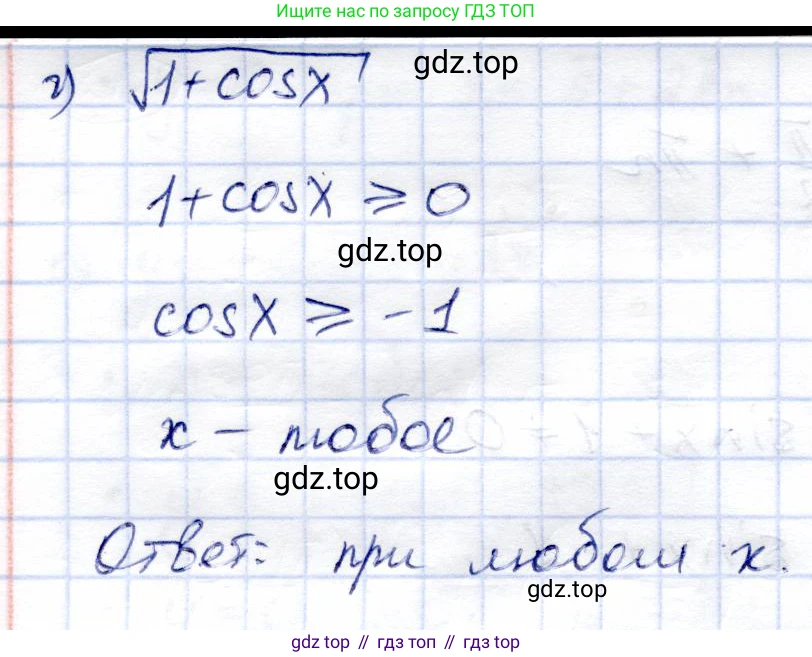 Ищите нас по запросу ГДЗ ТОП
г) √1+cosx
gdz.top
1+cosx ⩾ 0
gdz.top
cosx ⩾ -1
x - любое
gdz.top
Ответ: при любом x.
gdz.top
gdz top // гдз топ // gdz.top